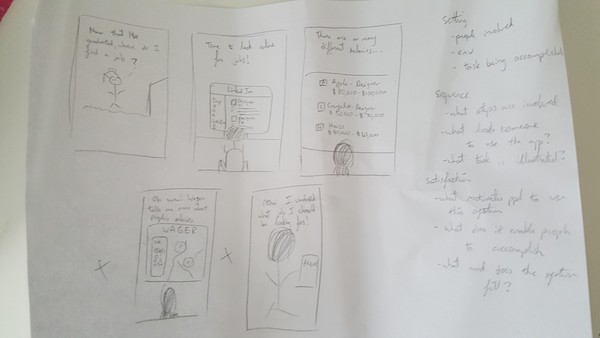 Now that I've
graduated, where do I
find a job?
Time to look online
for jobs!
Linked In
There are so many
different salaries...
Apple - Designer
$80,000 - $100,000
Google - Designer
Houzz
Oh wow! Wager
tells me more about
salaries
WAGER
Now I understand
what I should
be looking for!
Setting
- people involved
- env
- task being accomplished
Sequence
- what steps are involved
- what leads someone
to use the app?
- what task is illustrated?
Satisfaction
- what motivates ppl to use
this system
- what does it enable people
to accomplish
- what need does the system
fill?